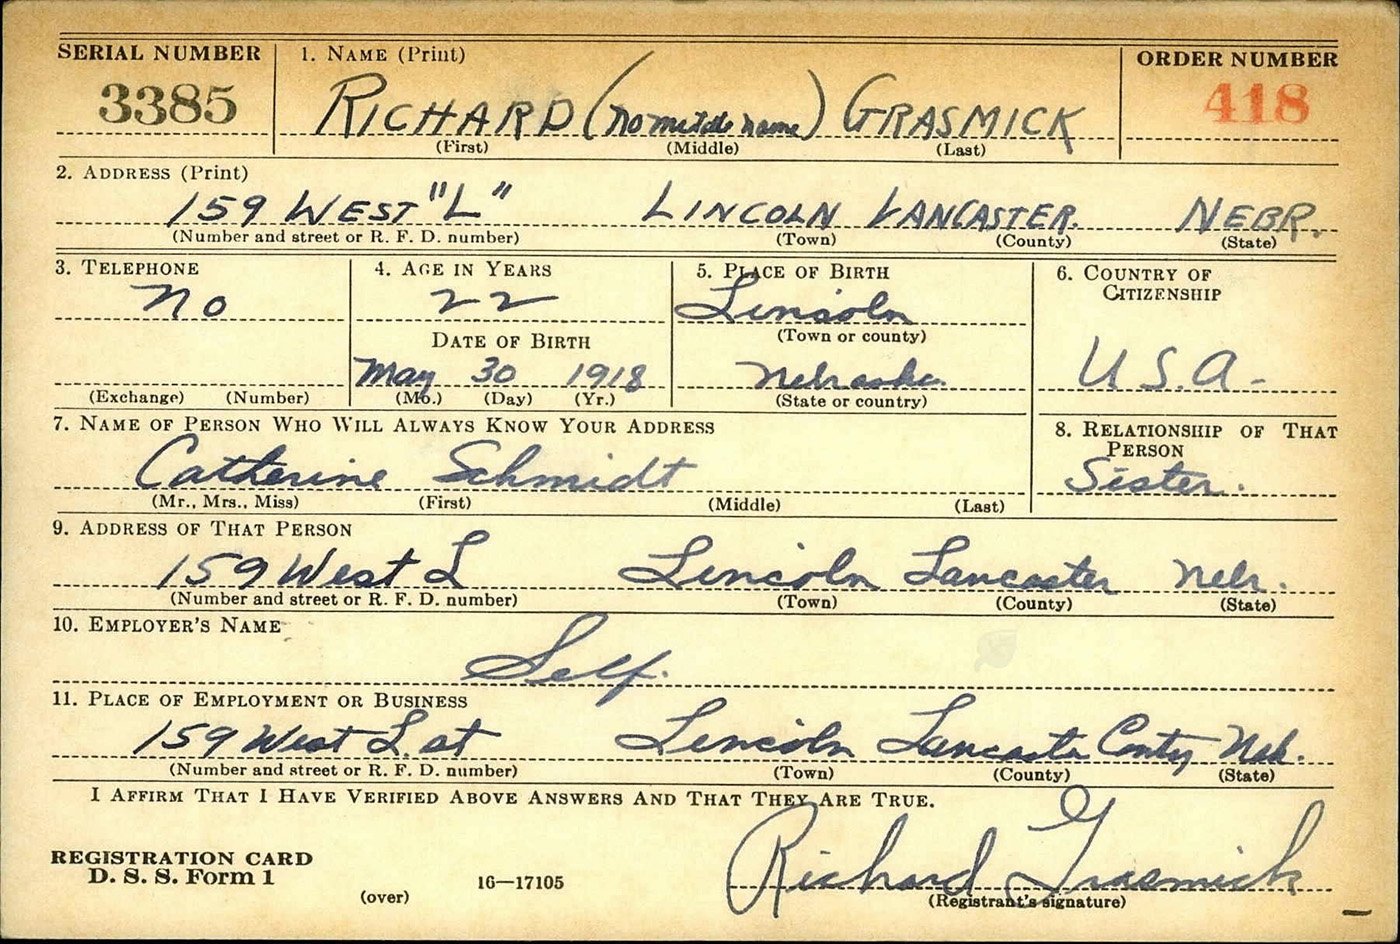 SERIAL NUMBER 1. NAME (Print) ORDER NUMBER
3385 RICHARD (no middle name) GRASMICK 418
(First) (Middle) (Last)
2. ADDRESS (Print)
159 WEST "L" LINCOLN LANCASTER. NEBR.
(Number and street or R. F. D. number) (Town) (County) (State)
3. TELEPHONE 4. AGE IN YEARS 5. PLACE OF BIRTH 6. COUNTRY OF
CITIZENSHIP
no 22 Lincoln
(Town or county)
DATE OF BIRTH
May 30 1918 Nebraska. U.S.A-
(Exchange) (Number) (Mo.) (Day) (Yr.) (State or country)
7. NAME OF PERSON WHO WILL ALWAYS KNOW YOUR ADDRESS 8. RELATIONSHIP OF THAT
PERSON
Catherine Schmidt Sister.
(Mr., Mrs., Miss) (First) (Middle) (Last)
9. ADDRESS OF THAT PERSON
159 West L Lincoln Lancaster Nebr.
(Number and street or R. F. D. number) (Town) (County) (State)
10. EMPLOYER'S NAME
Self.
11. PLACE OF EMPLOYMENT OR BUSINESS
159 West L. st Lincoln Lancaster Conty Neb.
(Number and street or R. F. D. number) (Town) (County) (State)
I AFFIRM THAT I HAVE VERIFIED ABOVE ANSWERS AND THAT THEY ARE TRUE.
Richard Grasmick
REGISTRATION CARD
D. S. S. Form 1 16—17105
(over) (Registrant's signature)